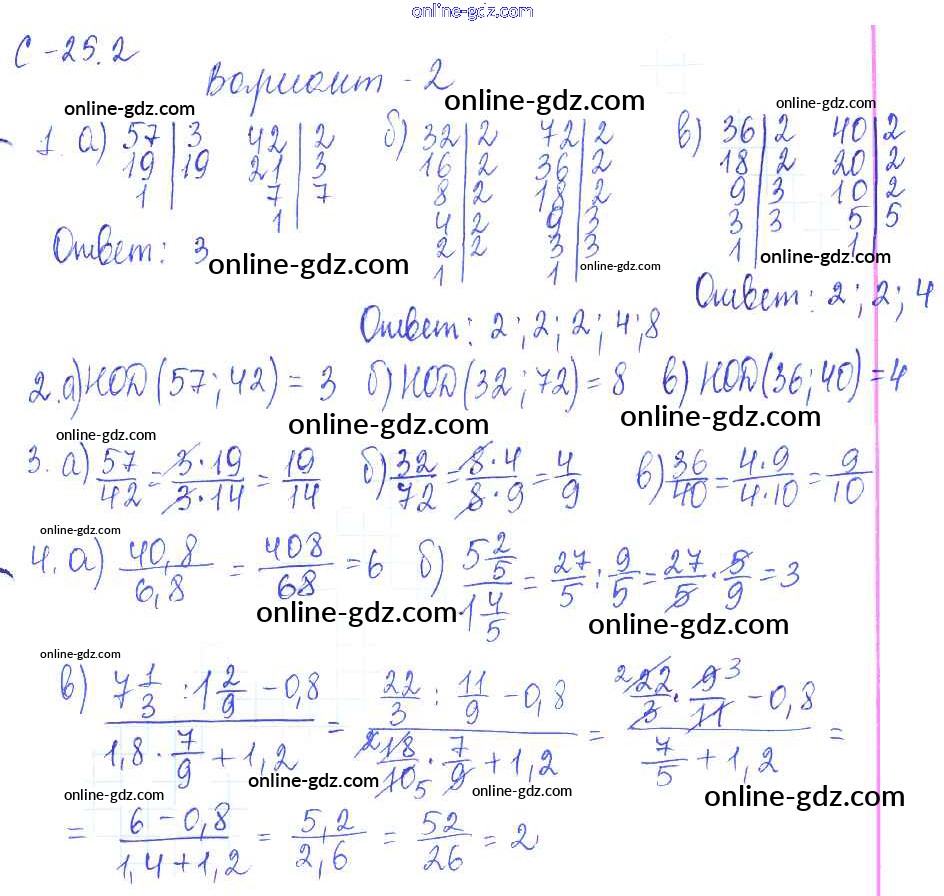 online-gdz.com
С-25.2
Вариант-2
online-gdz.com online-gdz.com online-gdz.com
1. а) 57 | 3 42 | 2 б) 32 | 2 72 | 2 в) 36 | 2 40 | 2
19 | 19 21 | 3 16 | 2 36 | 2 18 | 2 20 | 2
1 | 7 | 7 8 | 2 18 | 2 9 | 3 10 | 2
1 | 4 | 2 9 | 3 3 | 3 5 | 5
Ответ: 3 2 | 2 3 | 3 1 | 1 |
online-gdz.com 1 | 1 | online-gdz.com online-gdz.com
Ответ: 2; 2; 4
Ответ: 2; 2; 2; 4; 8
2. а) НОД (57; 42) = 3 б) НОД (32; 72) = 8 в) НОД (36; 40) = 4
online-gdz.com online-gdz.com online-gdz.com
3. а) 57/42 = 3·19/3·14 = 19/14 б) 32/72 = 8·4/8·9 = 4/9 в) 36/40 = 4·9/4·10 = 9/10
online-gdz.com
4. а) 40,8/6,8 = 408/68 = 6 б) 5 2/5 / 1 4/5 = 27/5 : 9/5 = 27/5 · 5/9 = 3
online-gdz.com online-gdz.com
online-gdz.com
в) (7 1/3 : 1 2/9 - 0,8)/(1,8 · 7/9 + 1,2) = (22/3 : 11/9 - 0,8)/(2 18/10 5 · 7/9 + 1,2) = (2 22/3 · 9 3/11 - 0,8)/(7/5 + 1,2) =
online-gdz.com online-gdz.com online-gdz.com online-gdz.com
= (6 - 0,8)/(1,4 + 1,2) = 5,2/2,6 = 52/26 = 2